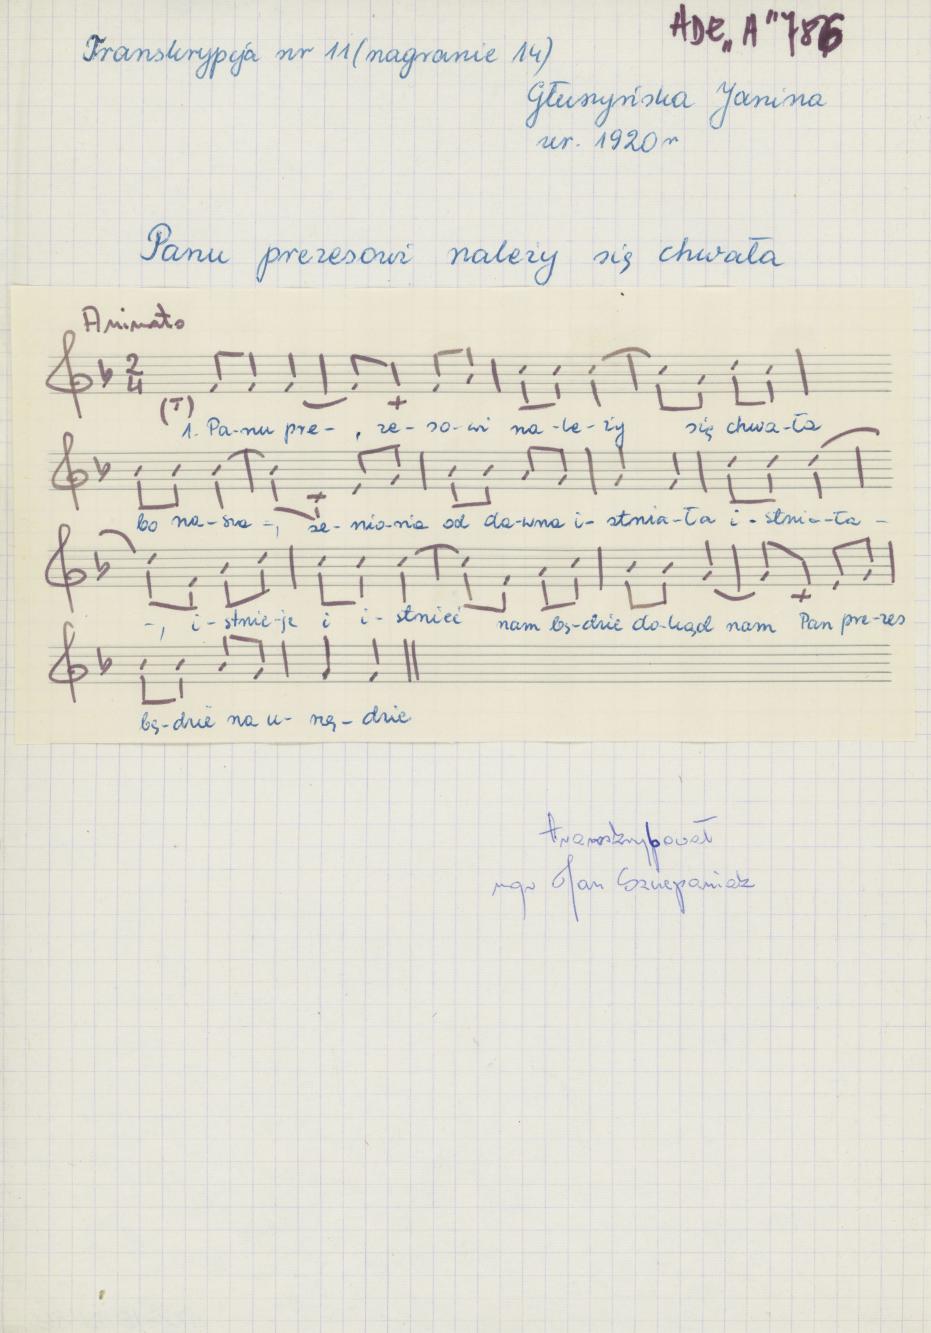 ADE „A" 786
Transkrypcja nr 11 (nagranie 14)
Głuszyńska Janina
ur. 1920 r
Panu prezesowi należy się chwała
Animato
2/4
(T)
1. Pa-nu pre- , ze- so-wi na-le-ży się chwa-ła
bo na-sza -, ze-nio-nia od da-wna i- stnia-ła i - stnia-ła -
-, i-stnie-je i i- stnieć nam bę-dzie do-kąd nam Pan pre-zes
bę-dzie na u- rzę-dzie
transkrybował
mgr Jan Szczepaniak